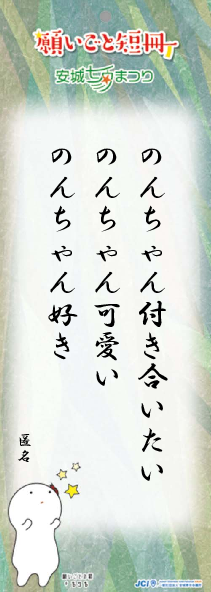 願いごと短冊
安城七夕まつり
のんちゃん付き合いたい
のんちゃん可愛い
のんちゃん好き
匿名
JCI